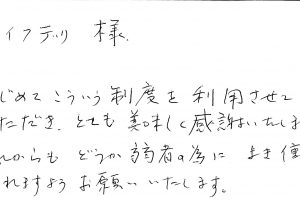 イフテック 様.
じめて こういう 制度を 利用させて
ただき、とても 美味しく感謝いたしま
れからも どうか 弱者の為に
れますよう お願いいたします。